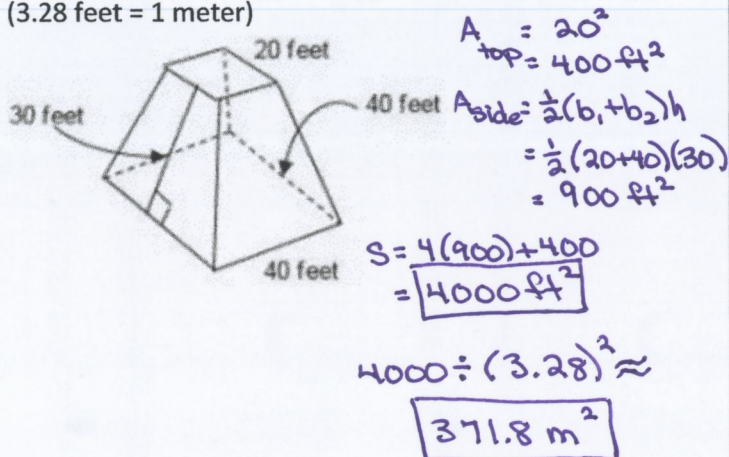 (3.28 feet = 1 meter)
20 feet
30 feet
40 feet
40 feet
A top = 20²
= 400 ft²
A side = ½(b₁+b₂)h
= ½(20+40)(30)
= 900 ft²
S = 4(900)+400
= 4000 ft²
4000 ÷ (3.28)² ≈
371.8 m²